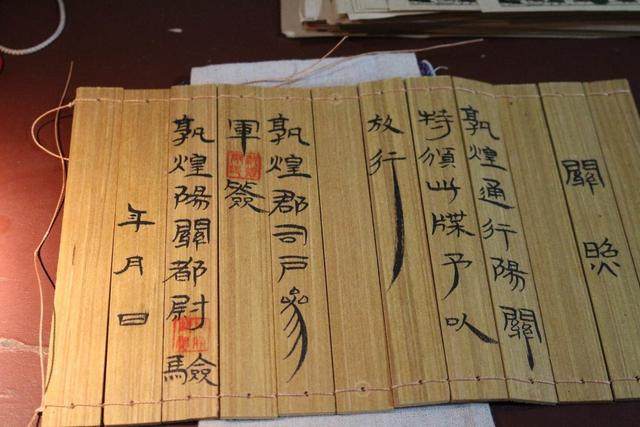 關照
敦煌通行陽關
特頒此牒予以
放行
敦煌郡司戶參
軍簽
敦煌陽關都尉驗
年月日